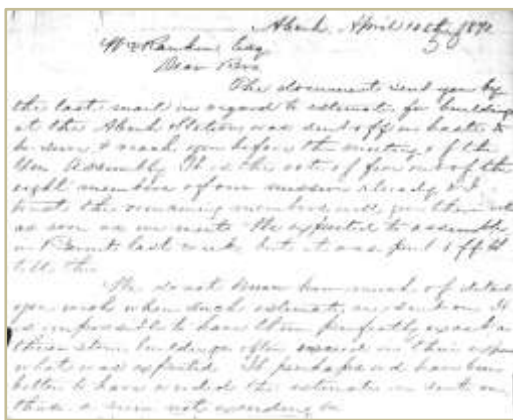 Abeih, April 10th 1872
Wm Rankin Esq
Dear Bro
The document sent you by
the last mail in regard to estimate for buildings
at the Abeih Station was sent off in haste to
be sure & reach you before the meeting of the
Gen Assembly. It is the vote of five out of the
eight members of our mission already & I
trust the remaining members will give their
as soon as we meet. We expected to assemble
in last week but it was put off
till this
We do not know how much of detail
you wish when such estimates are sent on. It
is impossible to have them perfectly exact as
these stone buildings often exceed in their
what was expected. It perhaps wd have been
better to have worded the estimate as sent on,
thus a sum not exceeding